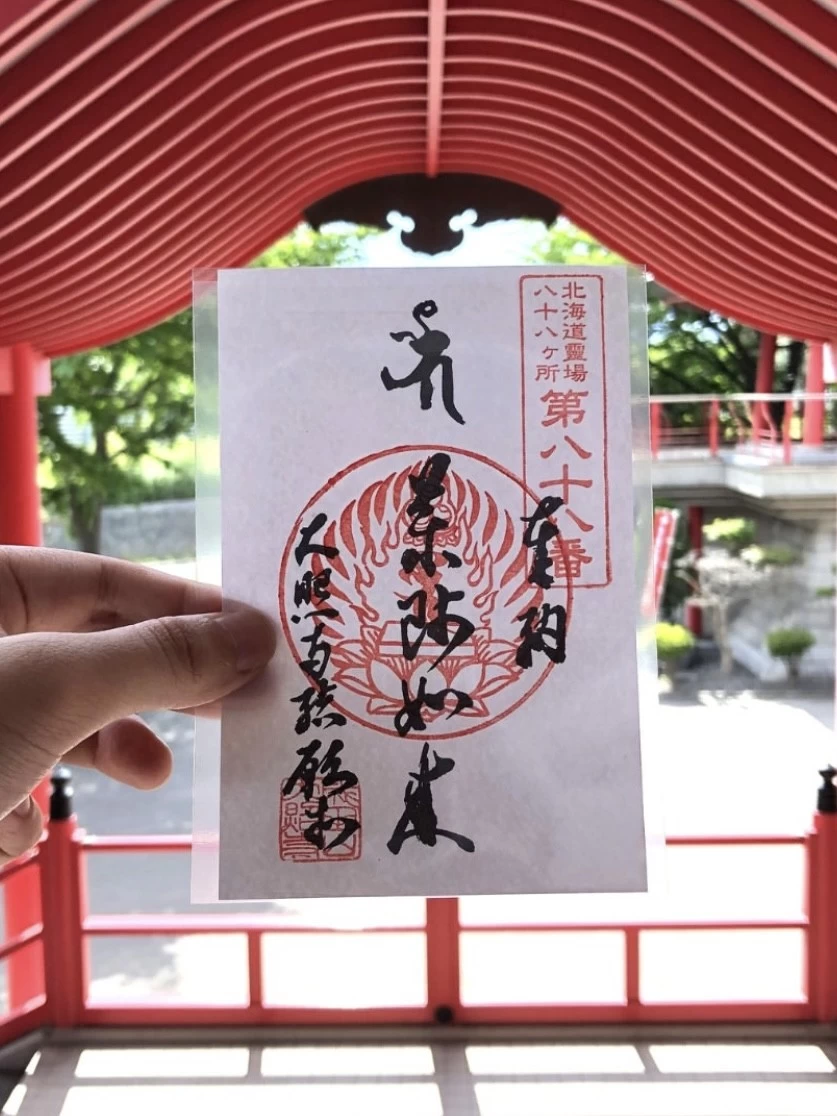 北海道靈場
八十八ヶ所
第八十八番
奉納
薬師如来
大照寺 結願所